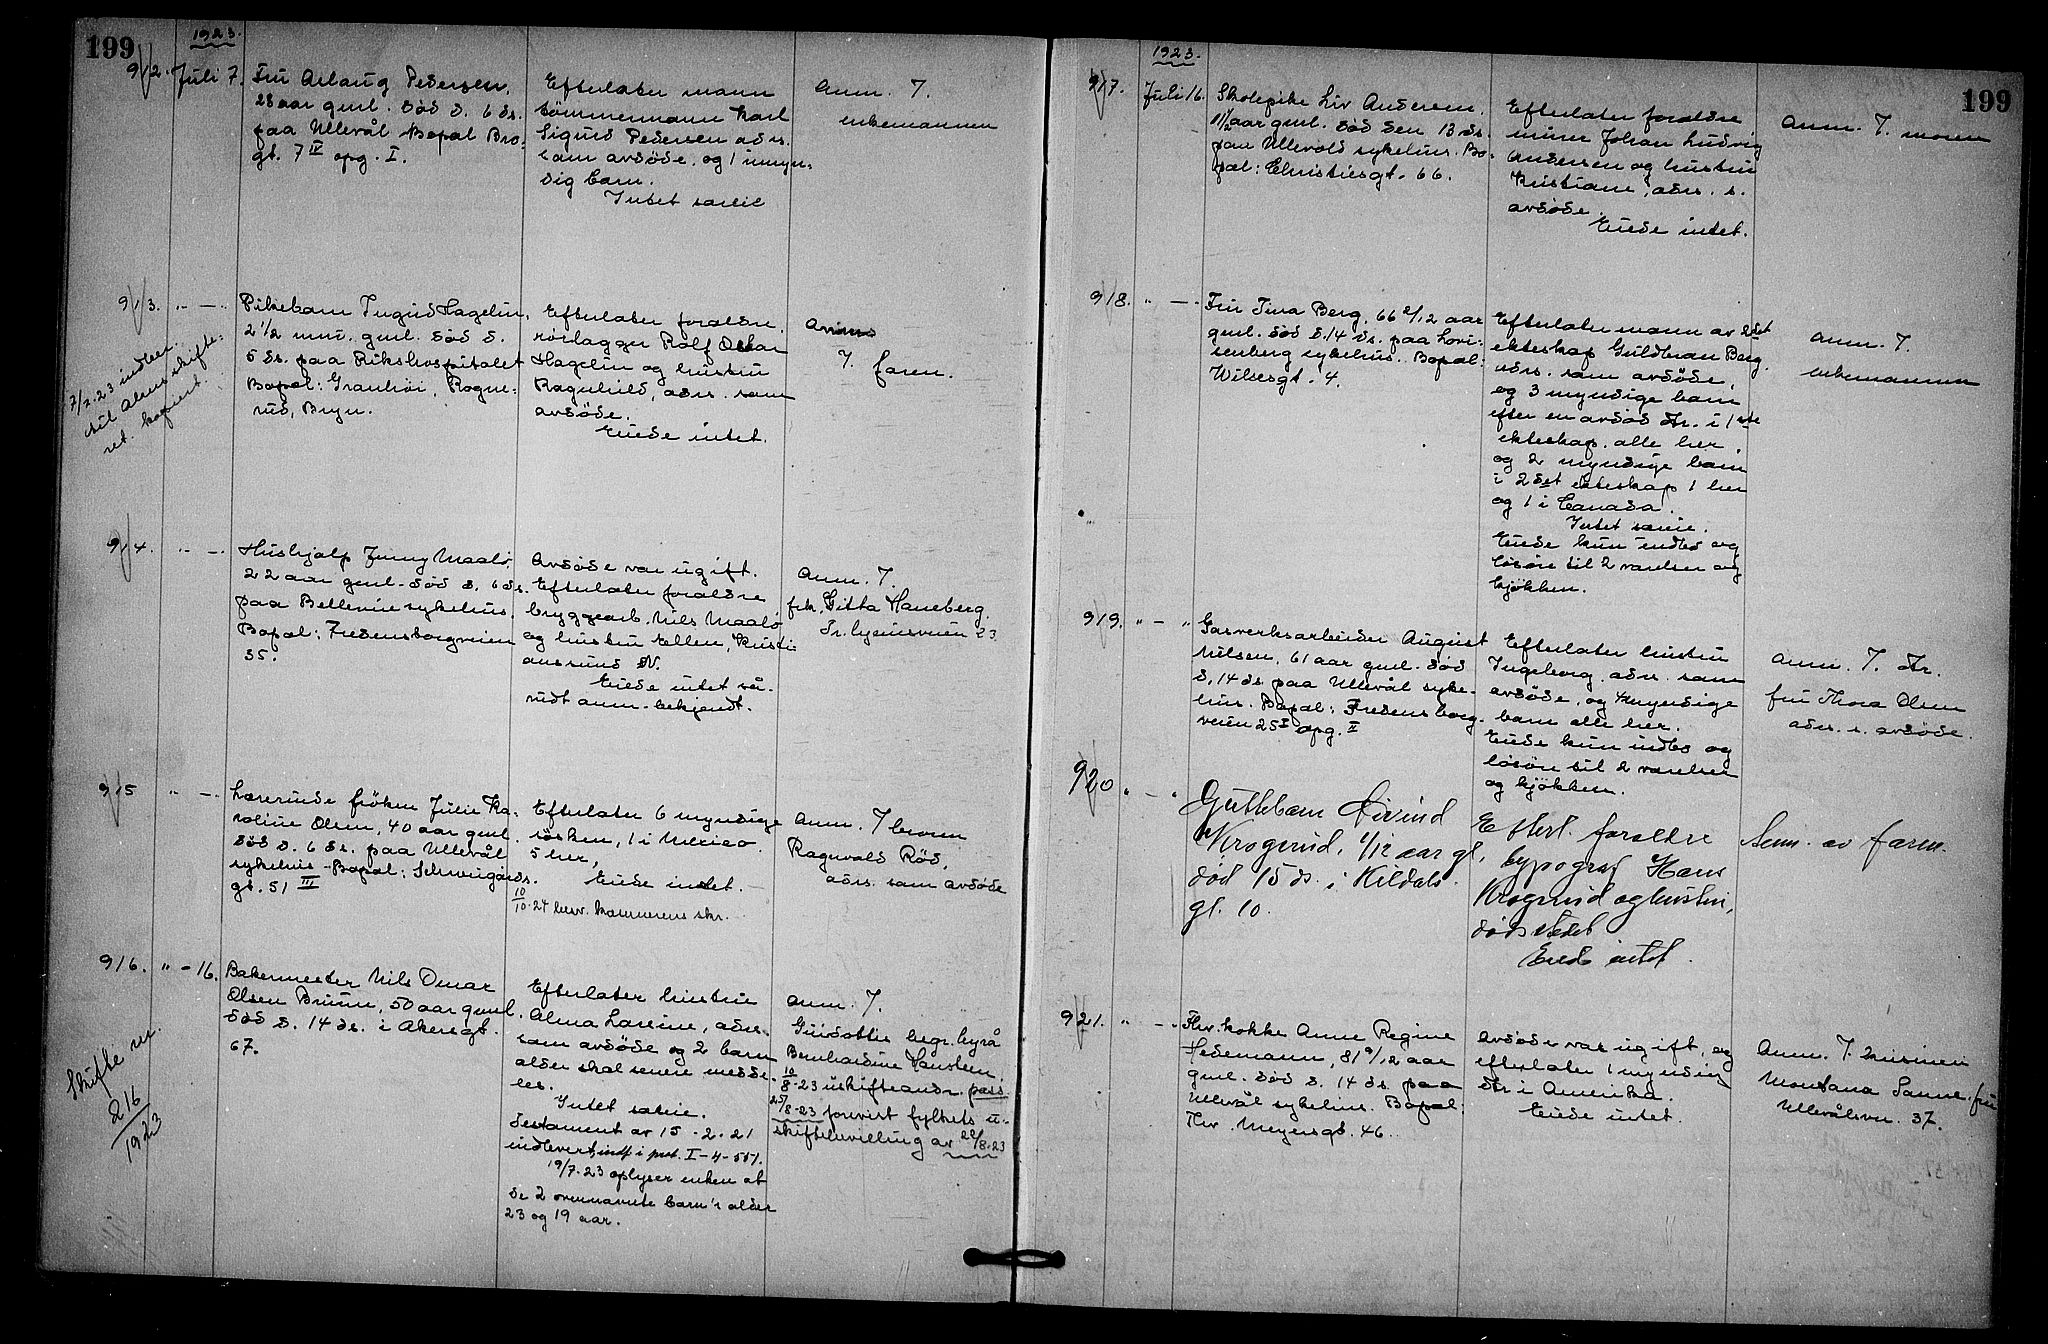 199
1923.
912. Juli 7. Fru Aslaug Pedersen,
28 aar gml. død d. 6 ds.
paa Ullevål Bopæl Bro-
gt. 7 IV opg. I.
Efterlater mann
tømmermann Karl
Sigurd Pedersen adrs.
som avdøde, og 1 umyn-
dig barn.
Intet særeie
Anm. 7.
enkemannen
913. " — " Pikebarn Ingrid Hagelin,
2 1/2 mnd. gml. død d.
5 ds. paa Rikshospitalet
Bopæl: Granhøi, Rogne-
rud, Bryn.
Efterlater forældre,
rørlægger Rolf Oskar
Hagelin og hustru
Ragnhild, adrs. som
avdøde.
Eiede intet.
7. faren.
indber.
til Akers skifte-
ret. kopiert.
914. " — " Hushjælp Jenny Maalø,
22 aar gml. død d. 6 ds.
paa Bellevue sykehus.
Bopæl: Fredensborgveien
35.
Avdøde var ugift.
Efterlater forældre
bryggearb. Nils Maalø
og hustru Ellen, Kristi-
anssund N.
Eiede intet så-
vidt anm. bekjendt.
Anm. 7.
frk. Gitta Haneberg,
915 " — " Lærerinde frøken Julie Ka-
roline Olsen, 40 aar gml.
død d. 6 ds. paa Ullevål
sykehus - Bopæl: Schweigaards-
gt. 51 III
Efterlater 6 myndige
søsken, 1 i Mexico
5 her,
Eiede intet.
10/10-24 besv. kæmnerens skr.
Anm. 7 broren
Ragnvald Rød,
adrs. som avdøde
916. " - 16. Bakermester Nils Omar
Olsen Bruun, 50 aar gml.
død d. 14 ds. i Akersgt.
67.
Efterlater hustru
Alma Lovine, adrs.
som avdøde og 2 barn
alder skal senere medde-
les.
Intet særeie.
Testament av 15-2-21
indlevert, indf i prot. I-4-551.
19/7-23 oplyser enken at
de 2 ovennævnte barn's alder
23 og 19 aar.
Anm. 7.
Guidottis begr. byrå
Bernhardine Hansteen.
10/8-23 uskifteandr. pass.
25/8-23 forevist fylkets u-
skiftebevilling av 22/8-23
Skifte nr.
216/1923
199
1923.
917. Juli 16. Skolepike Liv Andersen,
11 1/2 aar gml. død den 13 ds.
paa Ullevold sykehus. Bo-
pæl: Christiesgt. 66.
Efterlater forældre,
murer Johan Ludvig
Andersen og hustru
Kristiane, adrs. s.
avdøde.
Eiede intet.
Anm. 7. moren
918. " — " Fru Tina Berg, 66 2/12 aar
gml. død d. 14 ds. paa Lovi-
senberg sykehus. Bopæl:
Wilsesgt. 4.
Efterlater mann av 2det
ekteskap Guldbran Berg,
adrs. som avdøde,
og 3 myndige barn
efter en avdød dtr. i 1ste
ekteskap, alle her,
og 2 myndige barn
i 2det ekteskap 1 her
og 1 i Canada.
Intet særeie.
Eiede kun indbo og
løsøre til 2 værelser og
kjøkken.
Anm. 7
enkemannen
919. " — " Gasverksarbeider August
Nilsen, 61 aar gml. død
d. 14 ds paa Ullevål syke-
hus. Bopæl: Fredensborg-
veien 25 I opg. II
Efterlater hustru
Ingeborg, adrs. som
avdøde, og 4 myndige
barn alle her.
Eiede kun indbo og
løsøre til 2 værelser
og kjøkken.
Anm. 7. dtr.
fru Thora Olsen
adrs. s. avdøde.
920 " — " Guttebarn Øivind
Krogsrud, 1/12 aar gl,
død 15 ds. i Kildals
gt. 10.
Efterl. forældre
typograf Hans
Krogsrud og hustru,
dødsstedet
Eiede intet.
Anm. av faren.
921. " — " Fhv. kokke Anne Regine
Hedemann, 81 9/12 aar
gml. død d. 14 ds. paa
Ullevål sykehus. Bopæl:
Thv. Meyersgt. 46.
Avdøde var ugift, og
efterlater 1 myndig
dtr i Amerika.
Eiede intet.
Anm. 7. kusinen
Montana Sanne, fru
Ullevålsvn. 37.